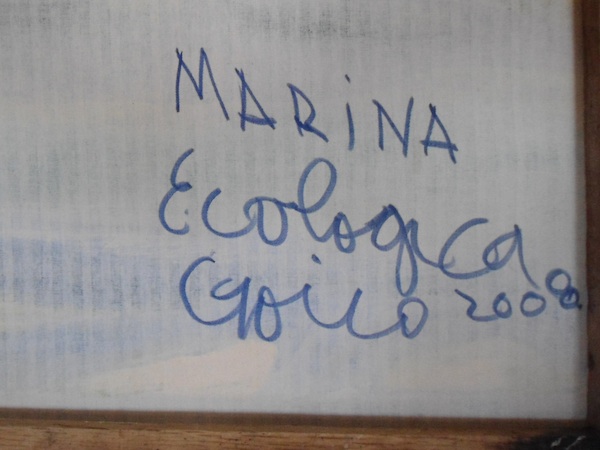 MARINA
Ecologica
Goico 2008